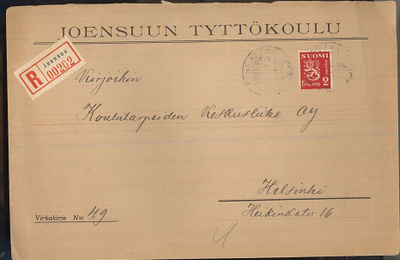 JOENSUUN TYTTÖKOULU
R JOENSUU
00202
SUOMI
FINLAND 2
Koulutarpeiden Keskusliike Oy
Helsinki
Heikinkatu 16
Virkakirje N:o 49